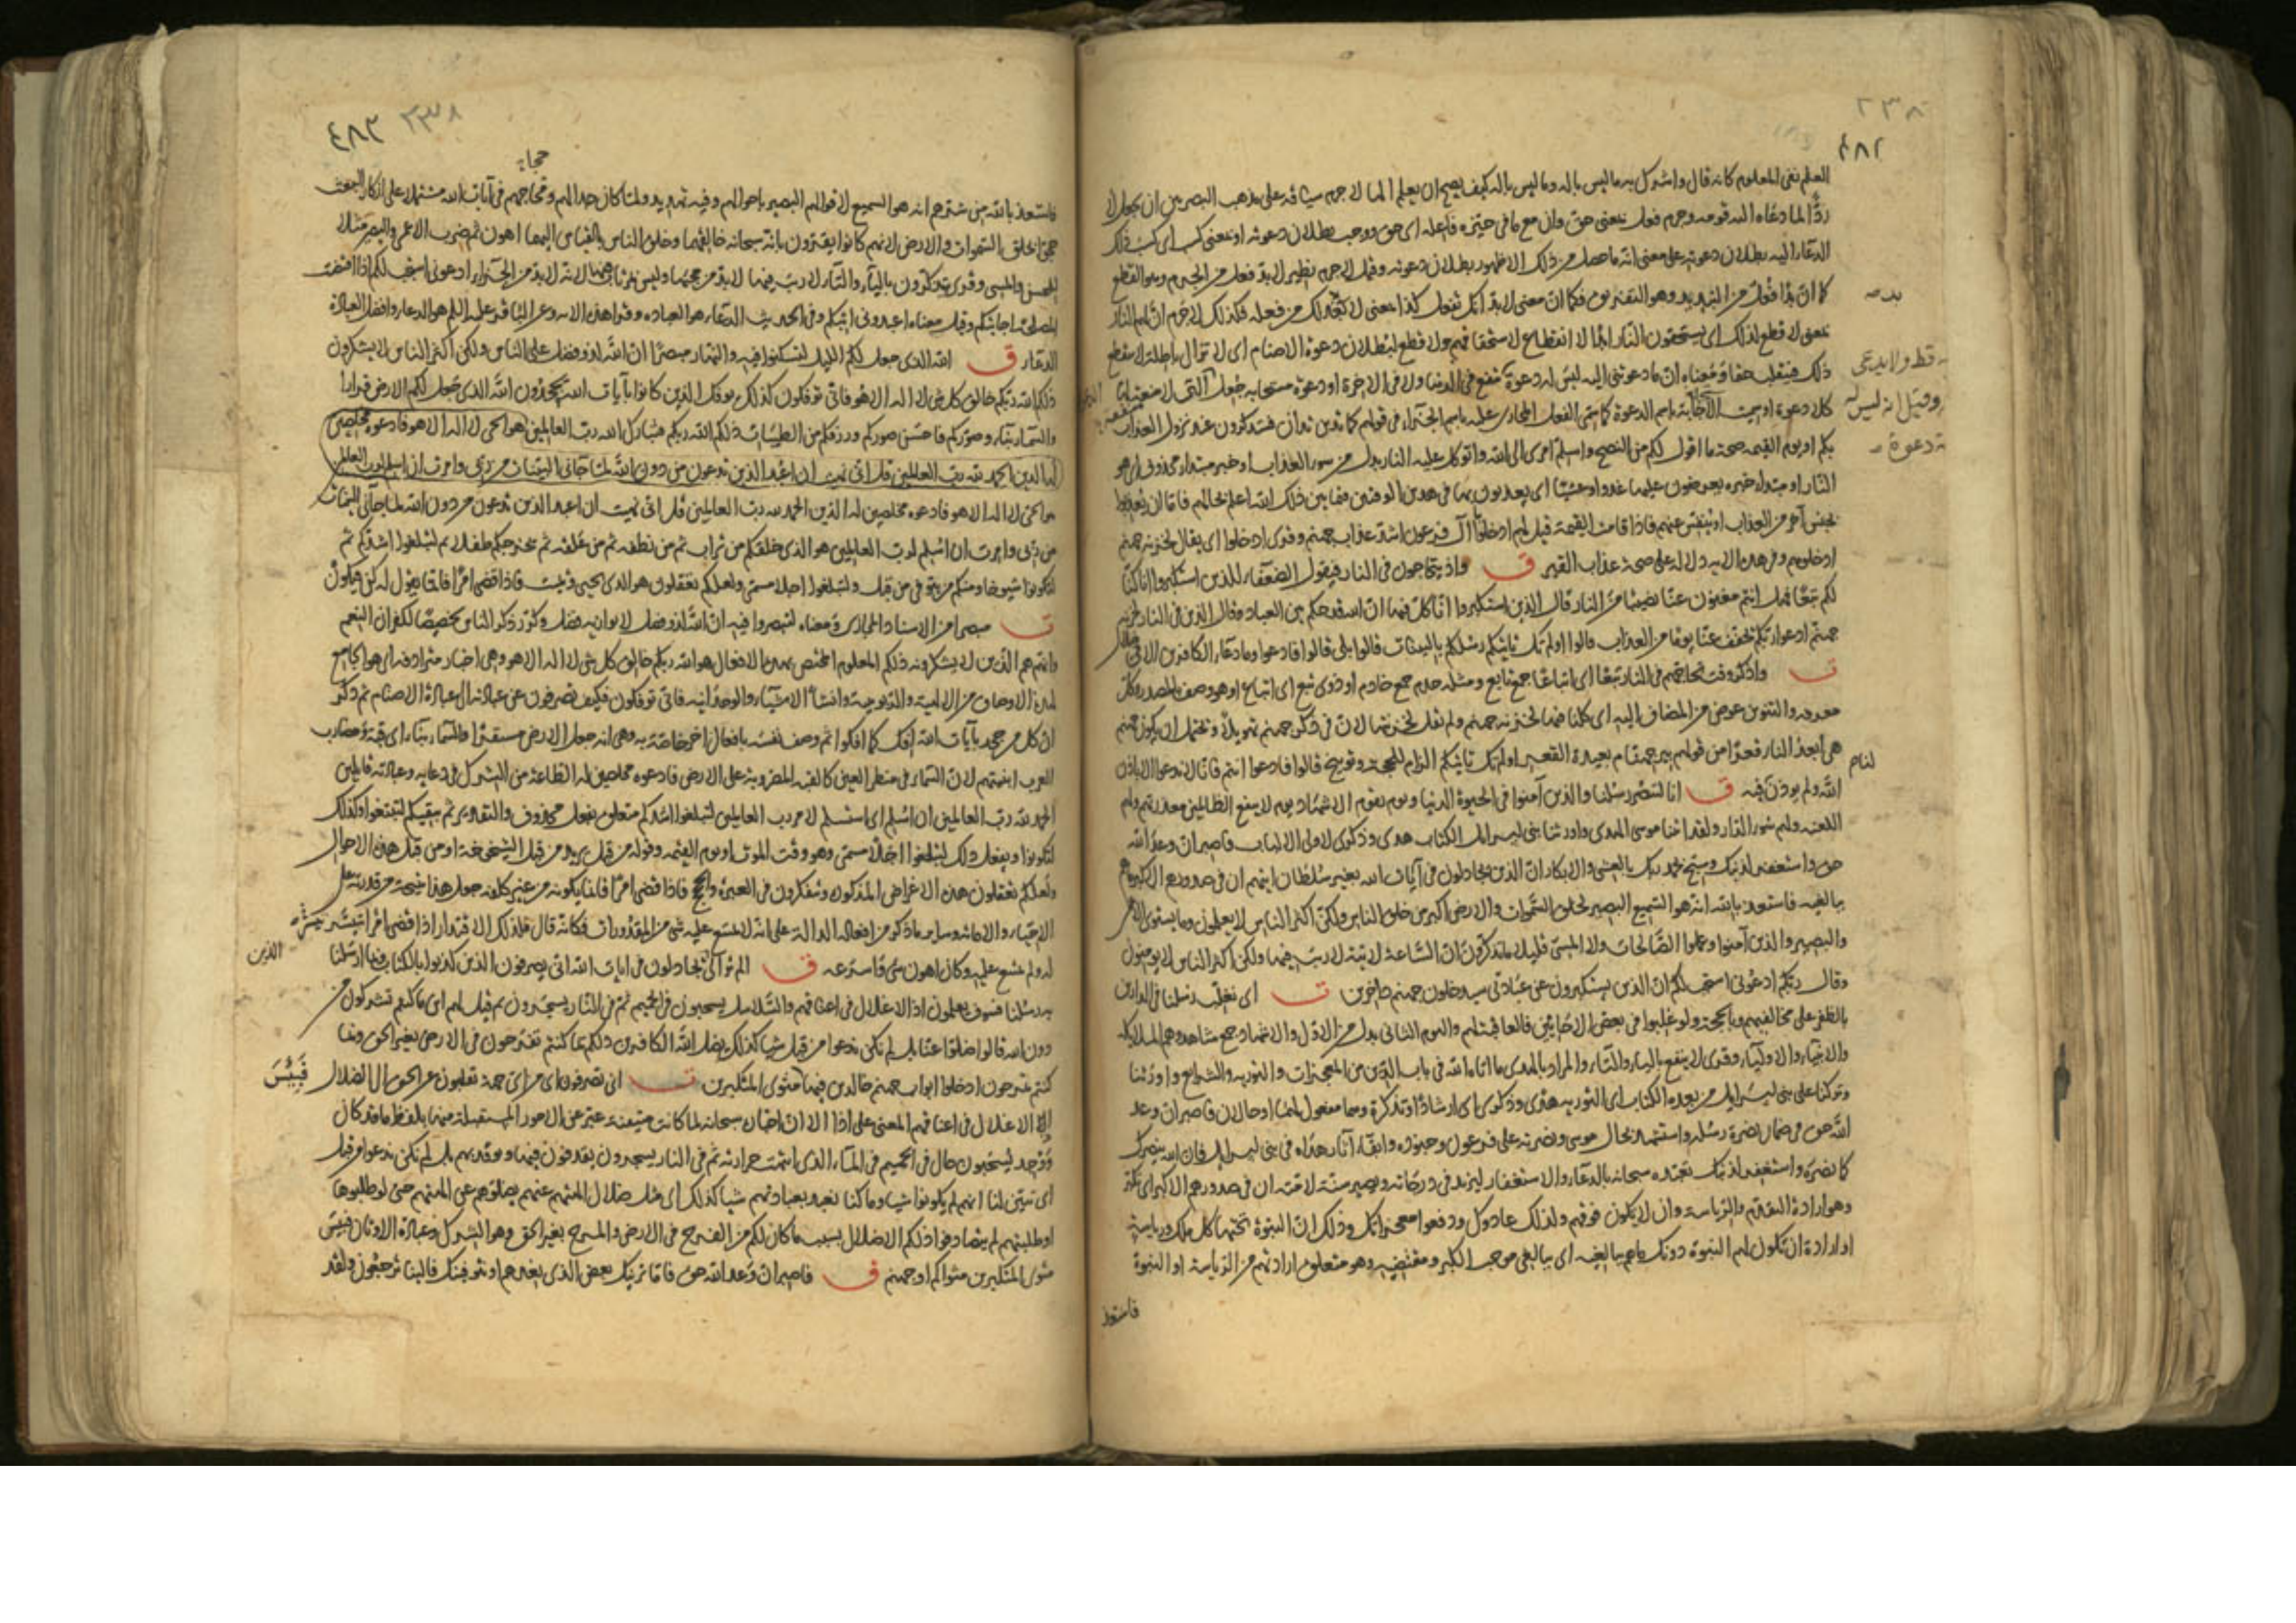 ٢٣٨
٤٨٢
العلم نفى المعلوم كانه قال واشرك به ما ليس باله وما ليس باله كيف يصح ان يعلم الها لا جرم سياقه على مذهب البصريين ان يجعل لا
ردّا لما دعاه اليه قومه وجرم فعل بمعنى حق وان مع ما في حيزه فاعله اى حق ووجب بطلان دعوته او بمعنى كسب اى كسب ذلك
الدعاء اليه بطلان دعوته على معنى انه ما حصل من ذلك الا ظهور بطلان دعوته وقيل لا جرم نظير لا بد فعل من الجرم وهو القطع
كما ان بدا فعل من التبديد وهو التفريق فكما ان معنى لا بد انك تفعل كذا بمعنى لا بد لك من فعله فكذلك لا جرم ان لهم النار
بمعنى لا قطع لذلك اى يستحقون النار ابدا لا انقطاع لاستحقاقهم ولا قطع لبطلان دعوة الاصنام اى لا تزال باطلة لا ينقطع
ذلك فينقلب حقا ومعناه ان ما تدعوننى اليه ليس له دعوة تنفع فى الدنيا ولا فى الاخرة او دعوة مستجابة جعلت التى لا منفعة لها
كلا دعوة او سميت الاجابة باسم الدعوة كما سمى الفعل المجازى عليه باسم الجزاء فى قولهم كما تدين تدان فستذكرون عند نزول العذاب
بكم او يوم القيمة صحة ما اقول لكم من النصح واسلم امرى الى الله واتوكل عليه النار بدل من سوء العذاب او خبر مبتدا محذوف اى هو
النار او مبتدا خبره يعرضون عليها غدوا وعشيا اى يعذبون بها فى هذين الوقتين وفيما بين ذلك الله اعلم بحالهم فاما ان يعذبوا
بجنس آخر من العذاب او ينفس عنهم فاذا قامت القيمة قيل لهم ادخلوا آل فرعون اشد عذاب جهنم وقرى ادخلوا اى يقال لخزنة جهنم
ادخلوهم وفى هذه الاية دلالة على صحة عذاب القبر ق واذ يتحاجون فى النار فيقول الضعفاء للذين استكبروا انا كنا
لكم تبعا فهل انتم مغنون عنا نصيبا من النار قال الذين استكبروا انا كل فيها ان الله قد حكم بين العباد وقال الذين فى النار لخزنة
جهنم ادعوا ربكم يخفف عنا يوما من العذاب قالوا اولم تك تاتيكم رسلكم بالبينات قالوا بلى قالوا فادعوا وما دعاء الكافرين الا فى ضلال
ت واذكر وقت تحاجهم فى النار تبعا اى اتباعا جمع تابع ومثله خدم جمع خادم او ذوى تبع اى اتباع او هو وصف بالمصدر وكل
معرفه والتنوين عوض من المضاف اليه اى كلنا فيها لخزنة جهنم ولم يقل لخزنتها لان فى ذكر جهنم تهويلا ويحتمل ان يكون جهنم
هى ابعد النار قعرا من قولهم بئر جهنام بعيدة القعر اولم تك تاتيكم الزام للحجة وتوبيخ قالوا فادعوا انتم فانا لا ندعو الا باذن
الله ولم يوذن فيه ق انا لننصر رسلنا والذين آمنوا فى الحيوة الدنيا ويوم يقوم الاشهاد يوم لا ينفع الظالمين معذرتهم ولهم
اللعنة ولهم سوء الدار ولقد اتينا موسى الهدى واورثنا بنى اسرائيل الكتاب هدى وذكرى لاولى الالباب فاصبر ان وعد الله
حق واستغفر لذنبك وسبح بحمد ربك بالعشى والابكار ان الذين يجادلون فى آيات الله بغير سلطان اتيهم ان فى صدورهم الا كبر ما هم
ببالغيه فاستعذ بالله انه هو السميع البصير لخلق السموات والارض اكبر من خلق الناس ولكن اكثر الناس لا يعلمون وما يستوى الاعمى
والبصير والذين آمنوا وعملوا الصالحات ولا المسئ قليلا ما تتذكرون ان الساعة لاتية لا ريب فيها ولكن اكثر الناس لا يومنون
وقال ربكم ادعونى استجب لكم ان الذين يستكبرون عن عبادتى سيدخلون جهنم داخرين ت اى نغلب رسلنا فى الدارين
بالظفر على مخالفيهم وبالحجة ولو غلبوا فى بعض الاحايين فالعاقبة لهم واليوم الثانى بدل من الاول والاشهاد جمع شاهد وهم الملائكة
والانبياء والاولياء وقرى لا ينفع بالياء والتاء والمراد بالهدى ما اتاه الله فى باب الدين من المعجزات والتورية والشرايع واورثنا
وتركنا على بنى اسرائيل من بعده الكتاب اى التورية هدى وذكرى اى ارشادا وتذكرة وهما مفعول لهما او حالان فاصبر ان وعد
الله حق فى ضمان نصرة رسله واستشهد بحال موسى ونصرته على فرعون وجنوده وابقاء آثار هداه فى بنى اسرائيل فان الله ينصرك
كما نصره واستغفر لذنبك تعبده سبحانه بالدعاء والاستغفار ليزيد فى درجاته وليصير سنة لامته ان فى صدورهم الا كبر اى تكبر
وهو ارادة التقدم والرياسة وان لا يكون فوقهم ولذلك عادوك ودفعوا معجزاتك وذلك ان النبوة تحتها كل ملك ورياسة
او ارادة ان تكون لهم النبوة دونك ما هم ببالغيه اى ببالغى موجب الكبر ومقتضيه وهو متعلق ارادتهم من الرياسة او النبوة
قط ولا يدعى
وقيل انه ليس له
دعوة
فاستعذ
٣٣٨
٤٨٣
فاستعذ بالله من شرهم انه هو السميع لاقوالهم البصير باحوالهم وفيه تهديد ولما كان جدالهم ومحاجتهم فى آيات الله مشتملا على انكار البعث
حجوا بخلق السموات والارض لانهم كانوا يقرون بانه سبحانه خالقهما وخلق الناس بالقياس اليهما اهون ثم ضرب الاعمى والبصير مثلا
للمحسن والمسئ وقرى يتذكرون بالياء والتاء لا ريب فيها لا بد من مجيئها وليس بمرتاب فيها لانه لا بد من الجزاء ادعونى استجب لكم اذا اقتضت
المصلحة اجابتكم وقيل معناه اعبدونى اثبكم وفى الحديث الدعاء هو العباده وقرا هذه الاية وعن الباقر عليه السلم هو الدعاء وافضل العبادة
الدعاء ق الله الذى جعل لكم الليل لتسكنوا فيه والنهار مبصرا ان الله لذو فضل على الناس ولكن اكثر الناس لا يشكرون
ذلكم الله ربكم خالق كل شئ لا اله الا هو فانى توفكون كذلك يوفك الذين كانوا بآيات الله يجحدون الله الذى جعل لكم الارض قرارا
والسماء بناء وصوركم فاحسن صوركم ورزقكم من الطيبات ذلكم الله ربكم فتبارك الله رب العالمين هو الحى لا اله الا هو فادعوه مخلصين
له الدين الحمد لله رب العالمين قل انى نهيت ان اعبد الذين تدعون من دون الله لما جاءنى البينات من ربى وامرت ان اسلم لرب العالمين
هو الحى لا اله الا هو فادعوه مخلصين له الدين الحمد لله رب العالمين قل انى نهيت ان اعبد الذين تدعون من دون الله لما جاءنى البينات
من ربى وامرت ان اسلم لرب العالمين هو الذى خلقكم من تراب ثم من نطفه ثم من علقه ثم يخرجكم طفلا ثم لتبلغوا اشدكم ثم
لتكونوا شيوخا ومنكم من يتوفى من قبل ولتبلغوا اجلا مسمى ولعلكم تعقلون هو الذى يحيى ويميت فاذا قضى امرا فانما يقول له كن فيكون
ت مبصرا من الاسناد المجازى ومعناه لتبصروا فيه ان الله لذو فضل لا يوازيه فضل وكرر ذكر الناس تخصيصا لكفران النعم
وانهم هم الذين لا يشكرونه ذلكم المعلوم المختص بهذه الافعال هو الله ربكم خالق كل شئ لا اله الا هو وهى اخبار مترادفه اى هو الجامع
لهذه الاوصاف من الالهية والربوبية وانشاء الاشياء والوحدانيه فانى توفكون فكيف تصرفون عن عبادته الى عبادة الاصنام ثم ذكر
ان كل من جحد بآيات الله افك كما افكوا ثم وصف نفسه بافعال اخر خاصة به وهى انه جعل الارض مستقرا والسماء بناء اى قبة ومضارب
العرب ابنيتهم لان السماء فى منظر العين كالقبة المضروبة على الارض فادعوه مخلصين له الطاعة من الشرك فى دعايه وعبادته قايلين
الحمد لله رب العالمين ان اسلم اى استسلم لامر رب العالمين لتبلغوا اشدكم متعلق بفعل محذوف والتقدير ثم يبقيكم لتبلغوا وكذلك
لتكونوا ويفعل ذلك لتبلغوا اجلا مسمى وهو وقت الموت او يوم القيمة وقوله من قبل يريد من قبل الشيخوخة او من قبل هذه الاحوال
ولعلكم تعقلون هذه الاغراض المذكورة وتتفكرون فى العبر والحجج فاذا قضى امرا فانما يكونه من غير كلفه جعل هذا نتيجة من قدرته على
الاحياء والاماتة وساير ما ذكر من افعاله الدالة على انه لا يمتنع عليه شئ من المقدورات فكانه قال فلذلك الاقتدار اذا قضى امرا تيسر
له ولم يمتنع عليه وكان اهون شئ واسرعه ق الم تر الى الذين يجادلون فى ايات الله انى يصرفون الذين كذبوا بالكتاب وبما ارسلنا
به رسلنا فسوف يعلمون اذ الاغلال فى اعناقهم والسلاسل يسحبون فى الحميم ثم فى النار يسجرون ثم قيل لهم اين ما كنتم تشركون من
دون الله قالوا ضلوا عنا بل لم نكن ندعوا من قبل شيا كذلك يضل الله الكافرين ذلكم بما كنتم تفرحون فى الارض بغير الحق وبما
كنتم تمرحون ادخلوا ابواب جهنم خالدين فيها فبئس مثوى المتكبرين ت انى تصرفون اى من اى جهة تقلبون عن الحق الى الضلال
اذ الاغلال فى اعناقهم المعنى على اذا الا ان اخبار الله سبحانه لما كانت متيقنة عبر عن الامور المستقبلة منها بلفظ ما قد كان
ووجد يسحبون حال فى الحميم فى الماء الذى انتهت حرارته ثم فى النار يسجرون يقذفون فيها وتوقد بهم بل لم نكن ندعوا من قبل
اى تبين لنا انهم لم يكونوا شيا وما كنا نعبد بعبادتهم شيا كذلك اى مثل ضلال الهتهم عنهم يضلهم عن الهتهم حتى لو طلبوها
او طلبتهم لم يتصادفوا ذلكم الاضلال بسبب ما كان لكم من الفرح فى الارض والمرح بغير الحق وهو الشرك وعبادة الاوثان فبئس
مثوى المتكبرين مثواكم او جهنم ق فاصبر ان وعد الله حق فاما نرينك بعض الذى نعدهم او نتوفينك فالينا يرجعون ولقد
الذين
فَبِئْسَ